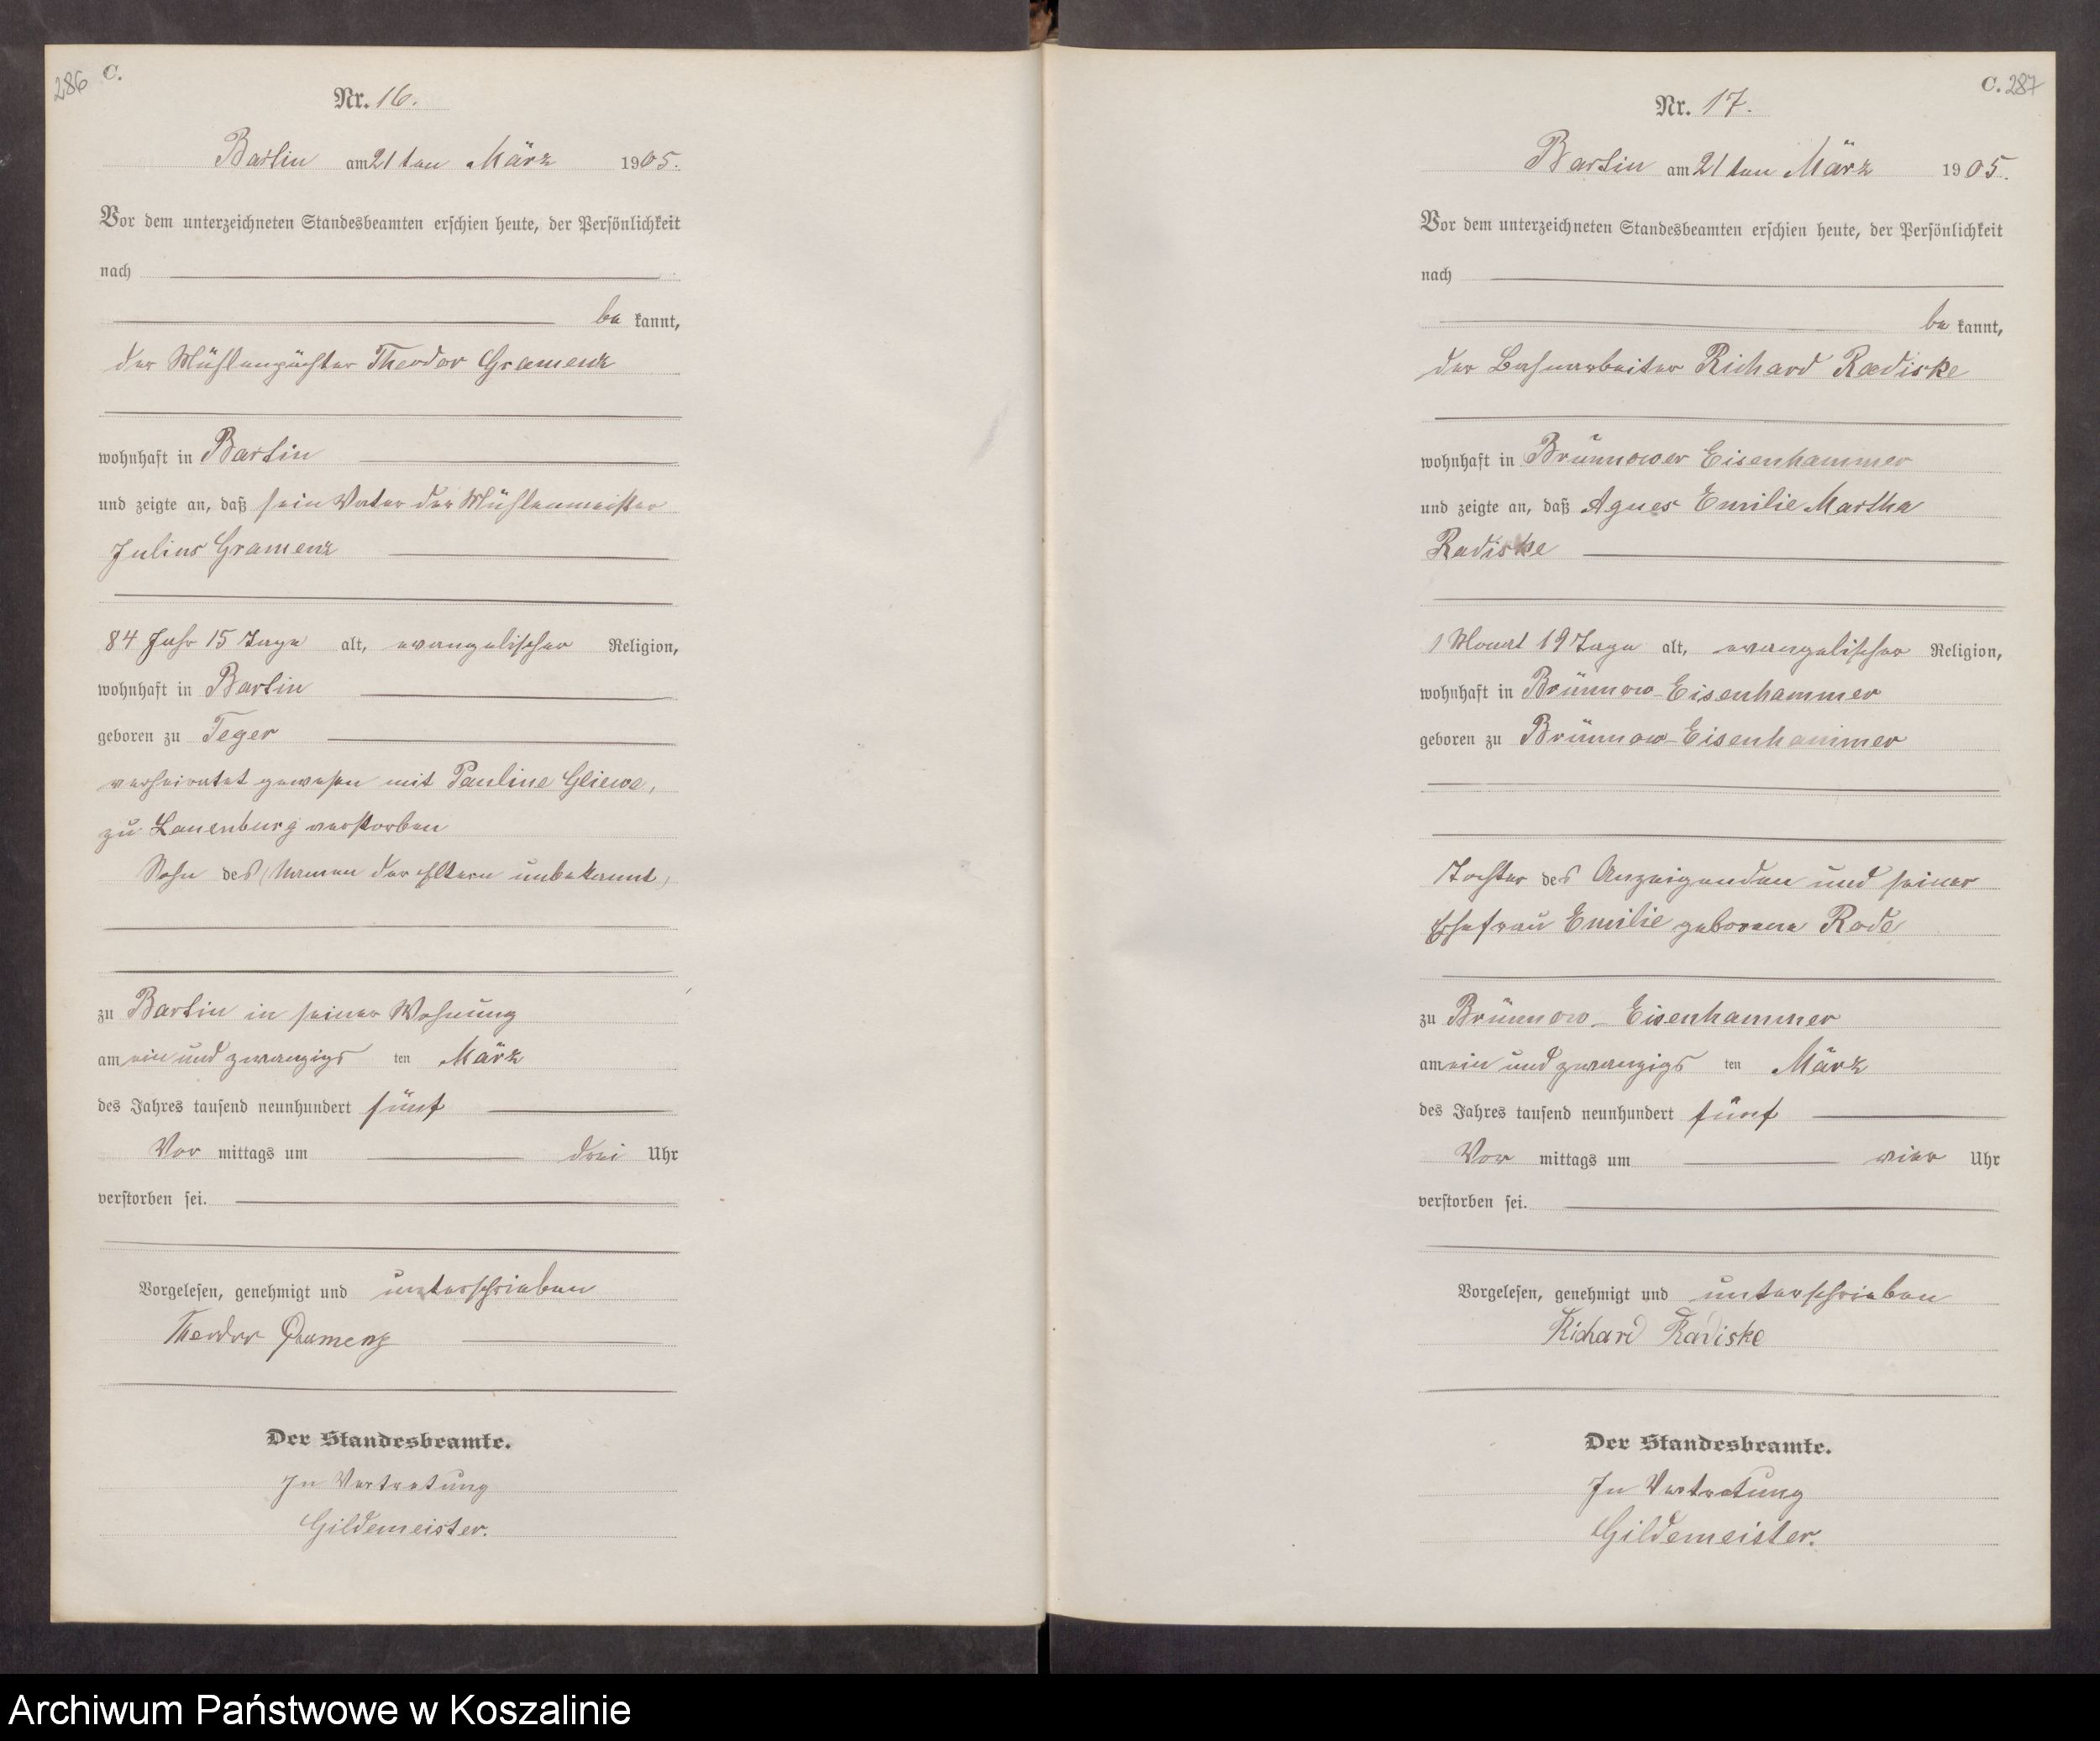 286 C.
Nr. 16.
Bartin am 21 ten März 1905.
Vor dem unterzeichneten Standesbeamten erschien heute, der Persönlichkeit
nach
be kannt,
der Mühlenpächter Theodor Gramenz
wohnhaft in Bartin
und zeigte an, daß sein Vater der Mühlenmeister
Julius Gramenz
84 Jahr 15 Tage alt, evangelischer Religion,
wohnhaft in Bartin
geboren zu Teger
verheiratet gewesen mit Pauline Gliewe,
zu Lauenburg verstorben
Sohn des (Namen der Eltern unbekannt)
zu Bartin in seiner Wohnung
am ein und zwanzigs ten März
des Jahres tausend neunhundert fünf
Vor mittags um drei Uhr
verstorben sei.
Vorgelesen, genehmigt und unterschrieben
Theodor Gramenz
Der Standesbeamte.
In Vertretung
Gildemeister.
C. 287
Nr. 17.
Bartin am 21 ten März 1905.
Vor dem unterzeichneten Standesbeamten erschien heute, der Persönlichkeit
nach
be kannt,
der Bahnarbeiter Richard Radiske
wohnhaft in Brünnower Eisenhammer
und zeigte an, daß Agnes Emilie Martha
Radiske
1 Monat 19 Tage alt, evangelischer Religion,
wohnhaft in Brünnow-Eisenhammer
geboren zu Brünnow-Eisenhammer
Tochter des Anzeigenden und seiner
Ehefrau Emilie geborene Rode
zu Brünnow-Eisenhammer
am ein und zwanzigs ten März
des Jahres tausend neunhundert fünf
Vor mittags um vier Uhr
verstorben sei.
Vorgelesen, genehmigt und unterschrieben
Richard Radiske
Der Standesbeamte.
In Vertretung
Gildemeister.
Archiwum Państwowe w Koszalinie